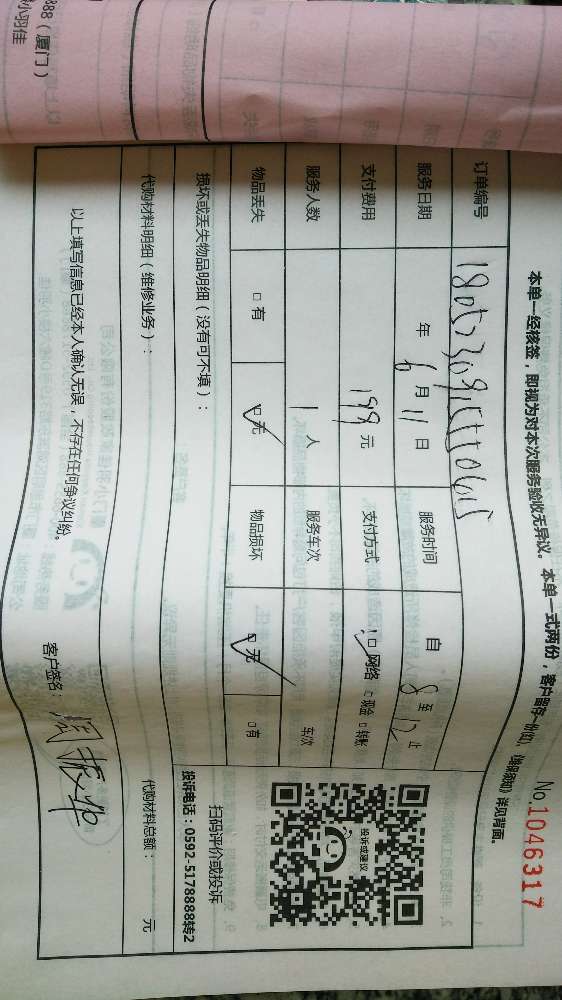 888（厦门）
小羽佳
No.1046317
本单一经核签，即视为对本次服务验收无异议。本单一式两份，客户留存一份(红)，《维保须知》详见背面。
订单编号
服务日期 年 6 月 11 日 服务时间 自 8 至 12 止
支付费用 199 元 支付方式 □网络 □现金 □转账
服务人数 1 人 服务车次 车次
物品丢失 □有 □无 物品损坏 □无 □有
损坏或丢失物品明细（没有可不填）：
投诉或建议
扫码评价或投诉
投诉电话：0592-5178888转2
代购材料明细（维修业务）：
代购材料总额： 元
以上填写信息已经本人确认无误，不存在任何争议纠纷。
客户签名：周振华